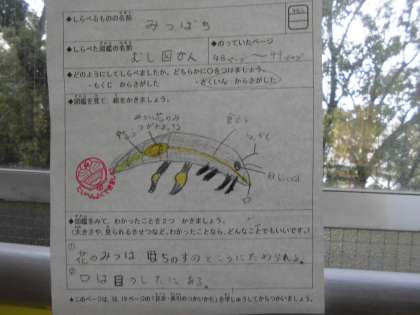 ◆しらべるものの名前
みつばち
◆しらべた図鑑の名前
むし図かん
◆のっていたページ
48ページ～49ページ
◆どのようにしてしらべましたか。どちらかに○をつけましょう。
・もくじ からさがした
・さくいん からさがした
◆図鑑を見て、絵をかきましょう。
◆図鑑をみて、わかったことを２つ かきましょう。
(大きさや、見られるきせつなど、わかったことなら、どんなことでもいいです。)
①
花のみつは はちのすのところにためられる。
②
口は目つしたにある。
★このページは、18、19ページの「目次・索引のつかいかた」を学しゅうしてからつかいましょう。